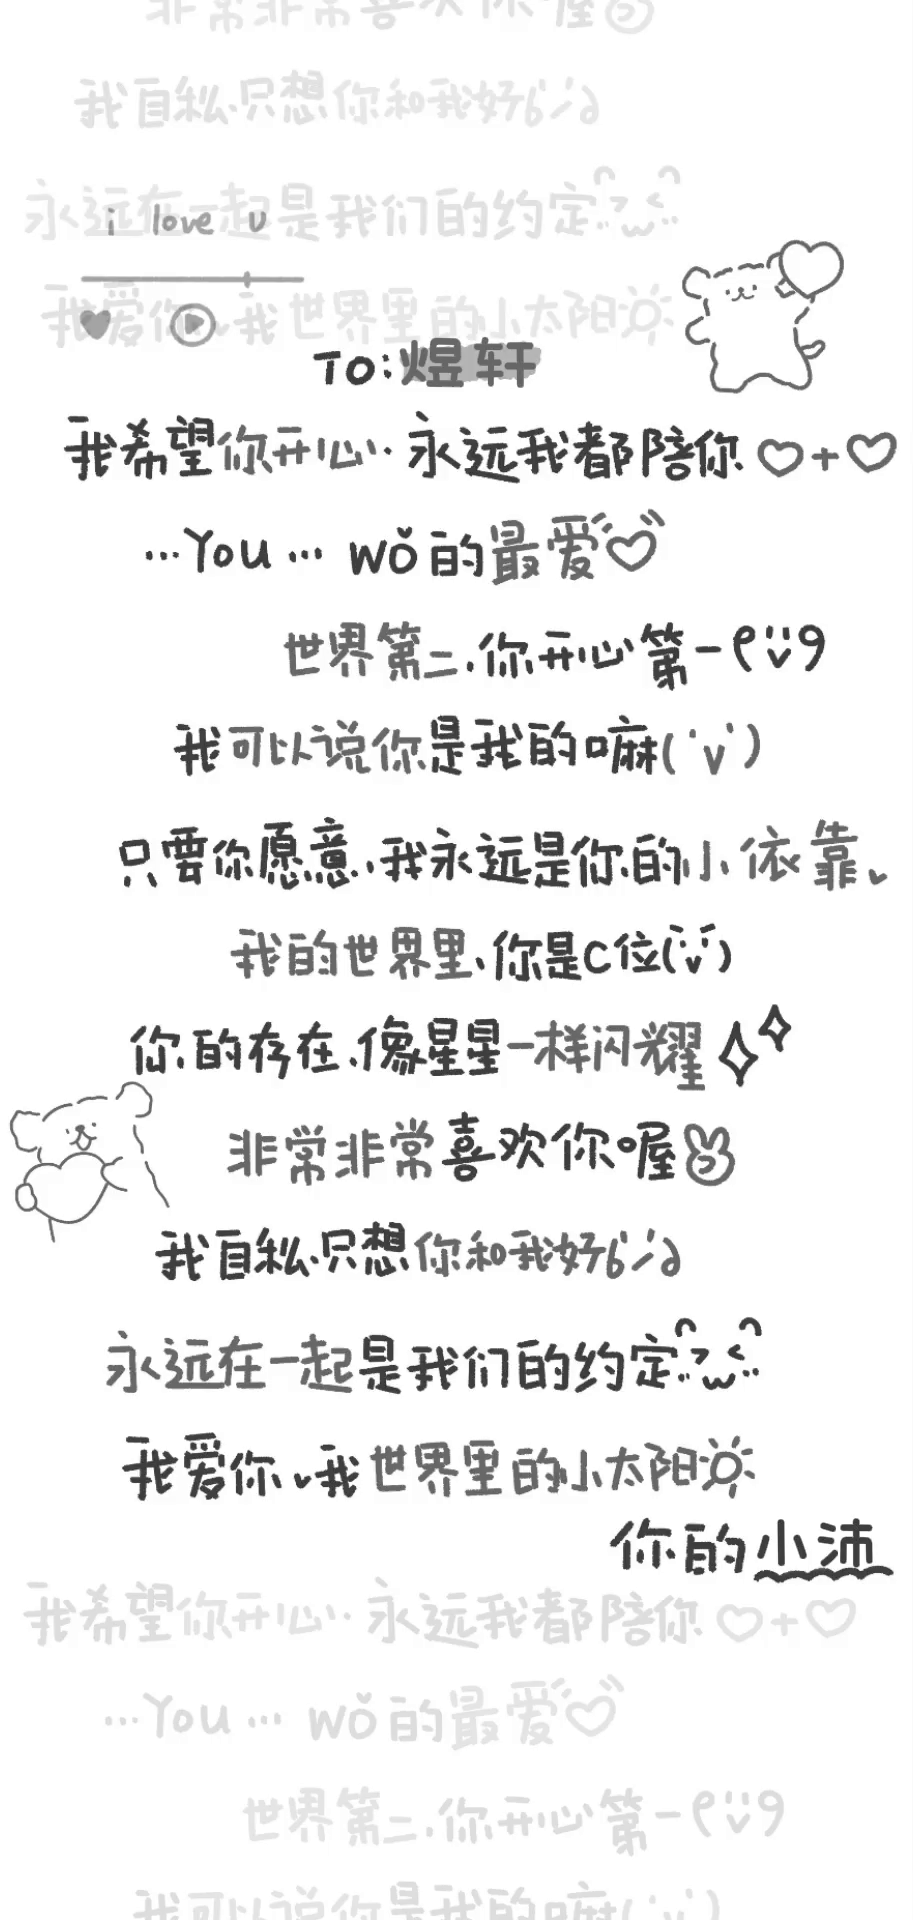 非常非常喜欢你喔
我自私、只想你和我好
永远在一起是我们的约定
i love u
我爱你、我世界里的小太阳
To:煜轩
我希望你开心··永远我都陪你♡+♡
···You··· wǒ的最爱♡
世界第二、你开心第一
我可以说你是我的嘛(˙v˙)
只要你愿意、我永远是你的小依靠、
我的世界里、你是C位(˙v˙)
你的存在、像星星一样闪耀✧✧
非常非常喜欢你喔
我自私、只想你和我好
永远在一起是我们的约定
我爱你、我世界里的小太阳
你的小沛
我希望你开心··永远我都陪你♡+♡
···You··· wǒ的最爱♡
世界第二、你开心第一
我可以说你是我的嘛(˙v˙)